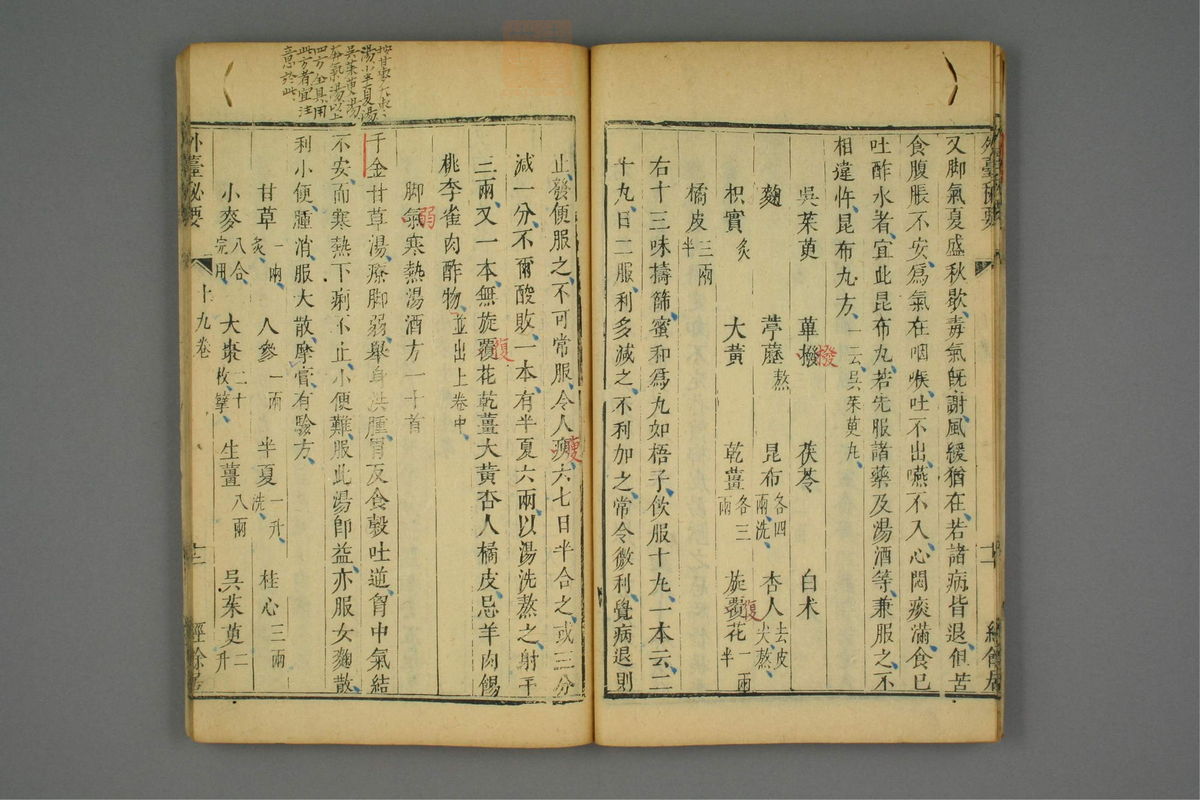 外臺秘要
十二
經餘居
又脚氣夏盛秋歇毒氣旣謝風緩猶在若諸病皆退但苦
食腹脹不安爲氣在咽喉吐不出嚥不入心悶痰滿食已
吐酢水者宜此昆布丸若先服諸藥及湯酒等兼服之不
相違忤昆布丸方一云吳茱萸丸
吳茱萸 蓽撥 茯苓 白朮
麴 葶藶熬 昆布各四兩洗 杏人去皮尖熬
枳實炙 大黃 乾薑各三兩 旋覆花一兩半
橘皮三兩半
右十三味擣篩蜜和爲丸如梧子飲服十九一本云二
十九日二服利多減之不利加之常令微利覺病退則
止發便服之不可常服令人瘦六七日半合之或三分
減一分不爾酸敗一本有半夏六兩以湯洗熬之射干
三兩又一本無旋覆花乾薑大黃杏人橘皮忌羊肉餳
桃李雀肉酢物並出上卷中
脚氣寒熱湯酒方一十首
千金甘草湯療脚弱舉身洪腫胃反食穀吐逆胷中氣結
不安而寒熱下痢不止小便難服此湯卽益亦服女麴散
利小便腫消服大散摩膏有驗方
甘草一兩炙 人參一兩 半夏一升洗 桂心三兩
小麥八合完用 大棗二十枚擘 生薑八兩 吳茱萸二升
外臺秘要
十九卷
十二
經餘居
湯小半夏湯
吳茱萸湯
四方全具用
此方者宜注
意於此
覆
撥
瘦
復
弱